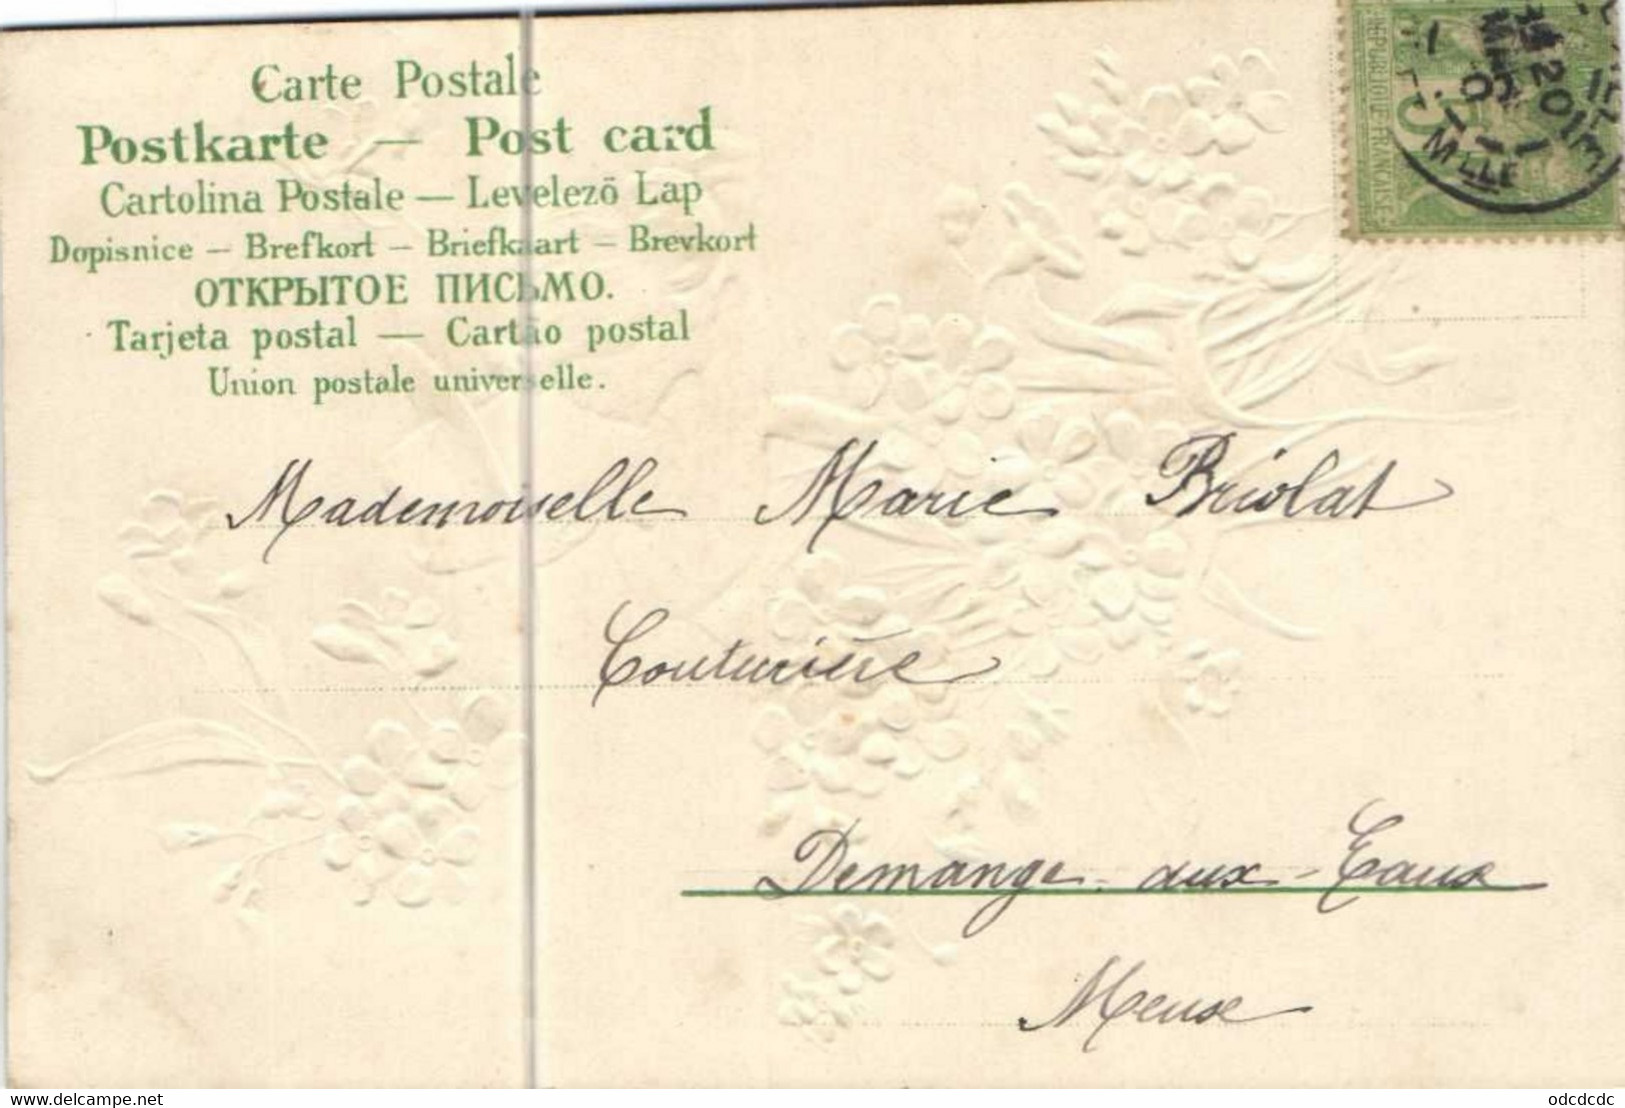 Carte Postale
Postkarte — Post card
Cartolina Postale — Levelező Lap
Dopisnice — Brefkort — Briefkaart — Brevkort
ОТКРЫТОЕ ПИСЬМО.
Tarjeta postal — Cartão postal
Union postale universelle.
REPUBLIQUE FRANCAISE
Mademoiselle Marie Briolat
Couturière
Demange-aux-Eaux
Meuse
https://www.delcampe.net
odcdcdc